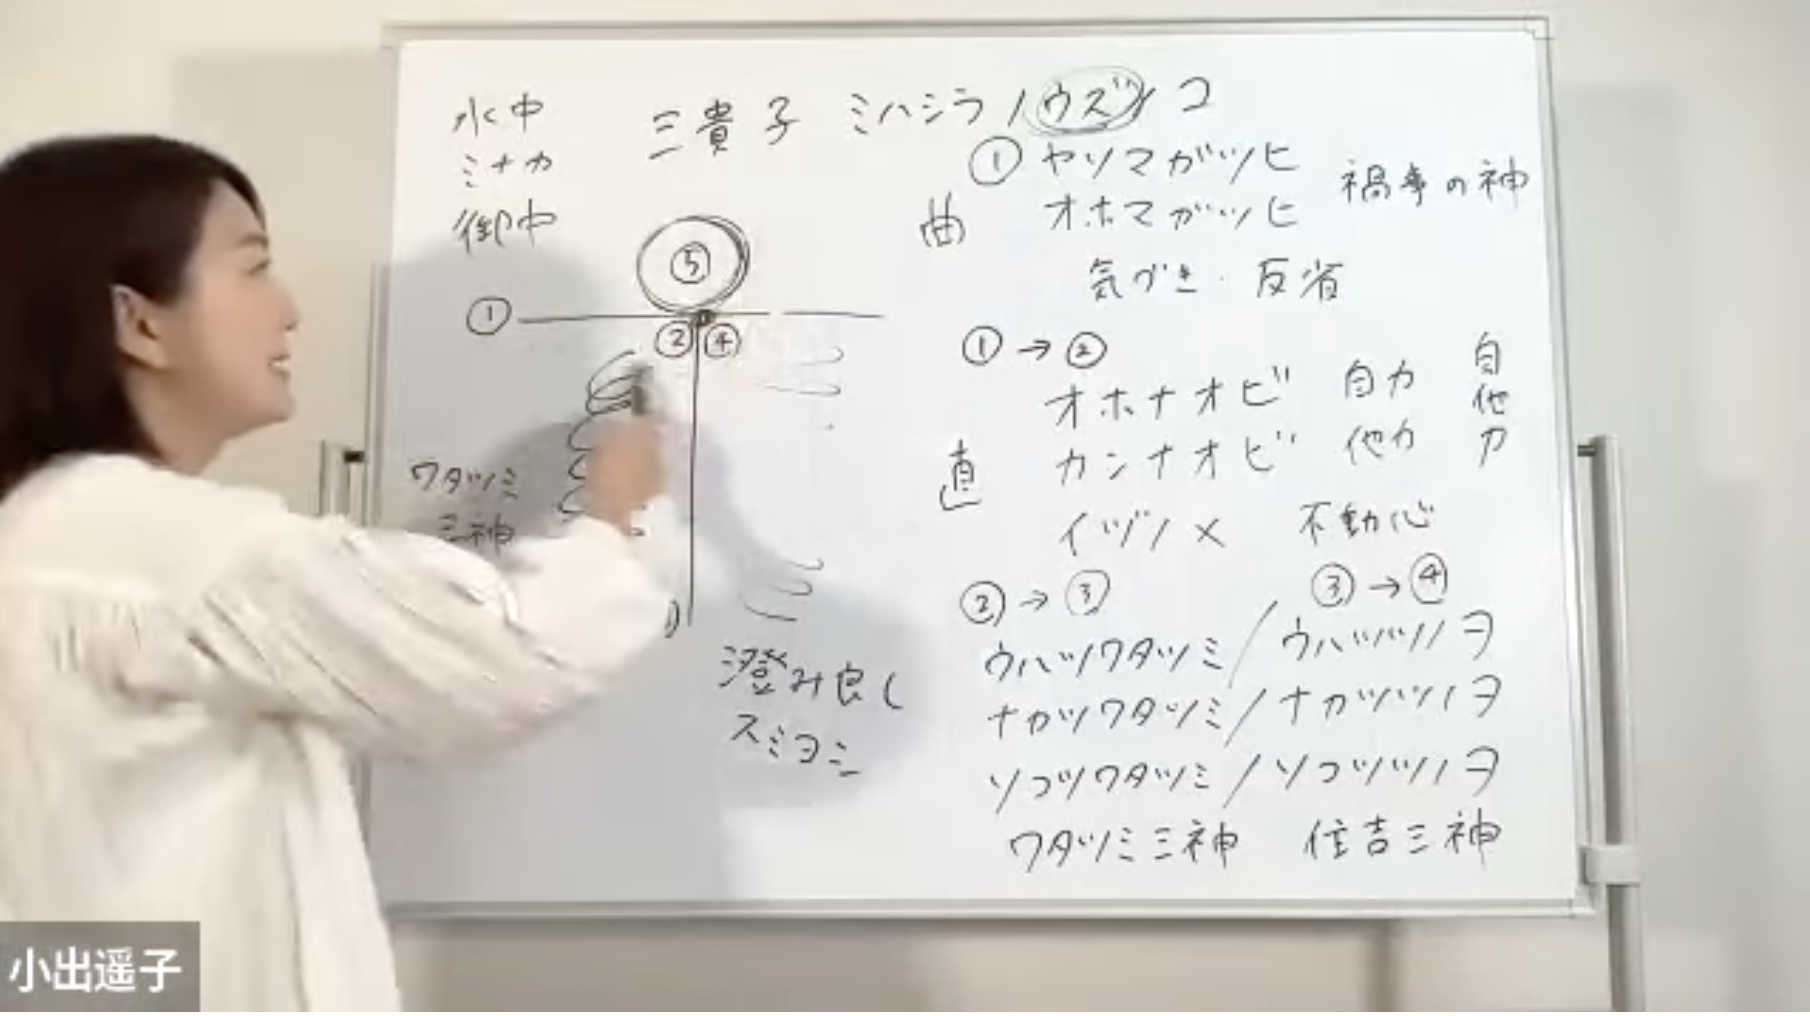 水中
ミナカ
御中
三貴子 ミハシラノウズノコ
① ヤソマガツヒ
オホマガツヒ
禍事の神
曲
気づき・反省
⑤
①
② ④
① → ②
オホナオビ 自力
カンナオビ 他力
自他力
直
イヅノメ 不動心
ワダツミ
三神
② → ③
③ → ④
ウハツワタツミ / ウハツツノヲ
ナカツワタツミ / ナカツツノヲ
ソコツワタツミ / ソコツツノヲ
ワダツミ三神 住吉三神
澄み良し
スミヨシ
小出遥子